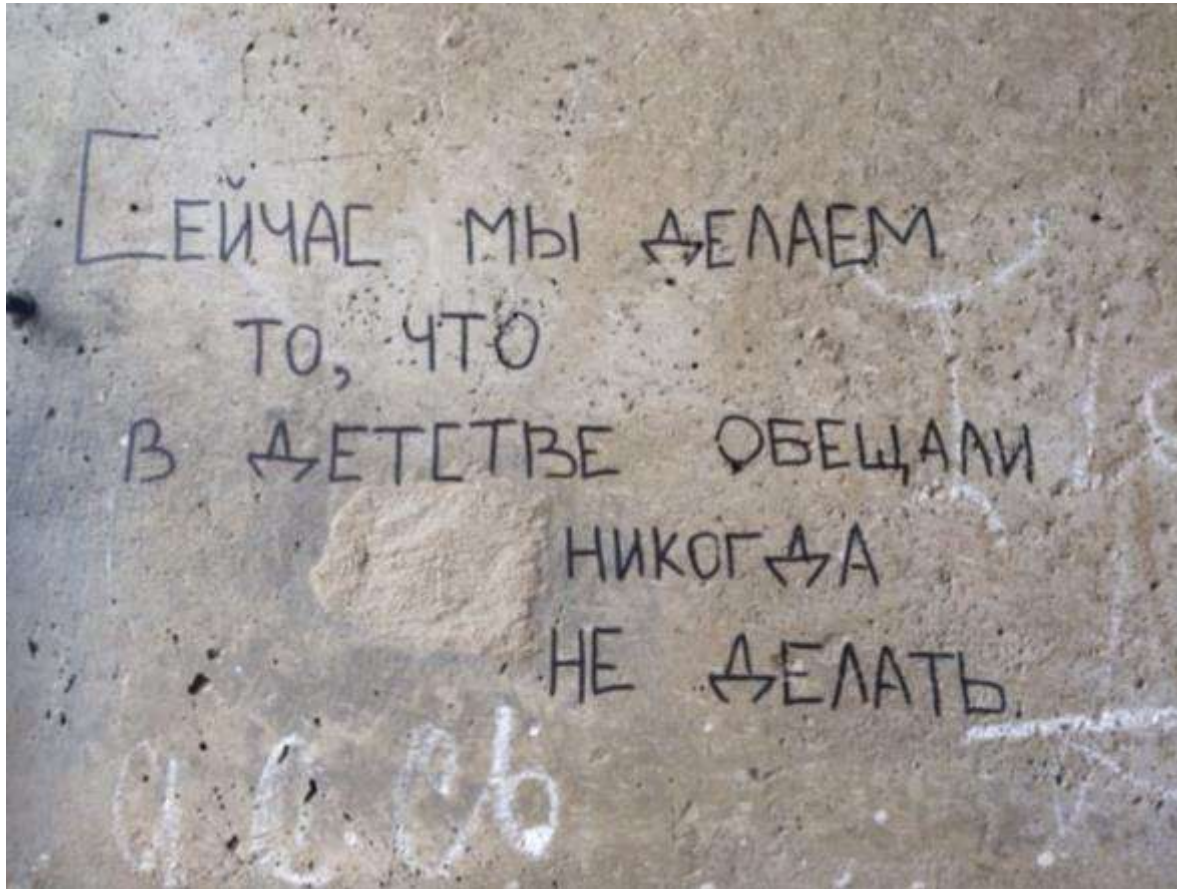 Сейчас мы делаем
то, что
в детстве обещали
никогда
не делать.